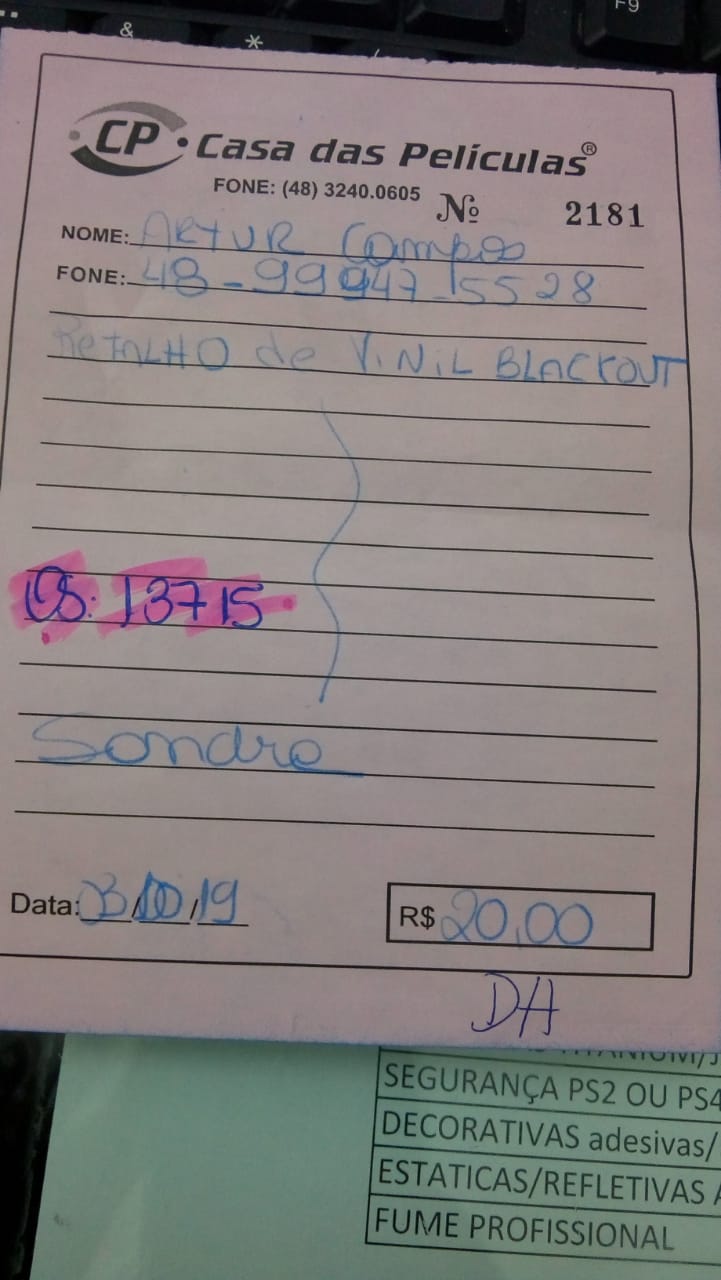 F9
&
*
CP • Casa das Películas®
FONE: (48) 3240.0605 Nº 2181
NOME: ARTUR Campos
FONE: 48-99947-5528
RETALHO de ViNiL BLACKOUT
OS: 13715
Sandra
Data: 03/10/19 R$ 20,00
DH
SEGURANÇA PS2 OU PS4
DECORATIVAS adesivas/
ESTATICAS/REFLETIVAS A
FUME PROFISSIONAL